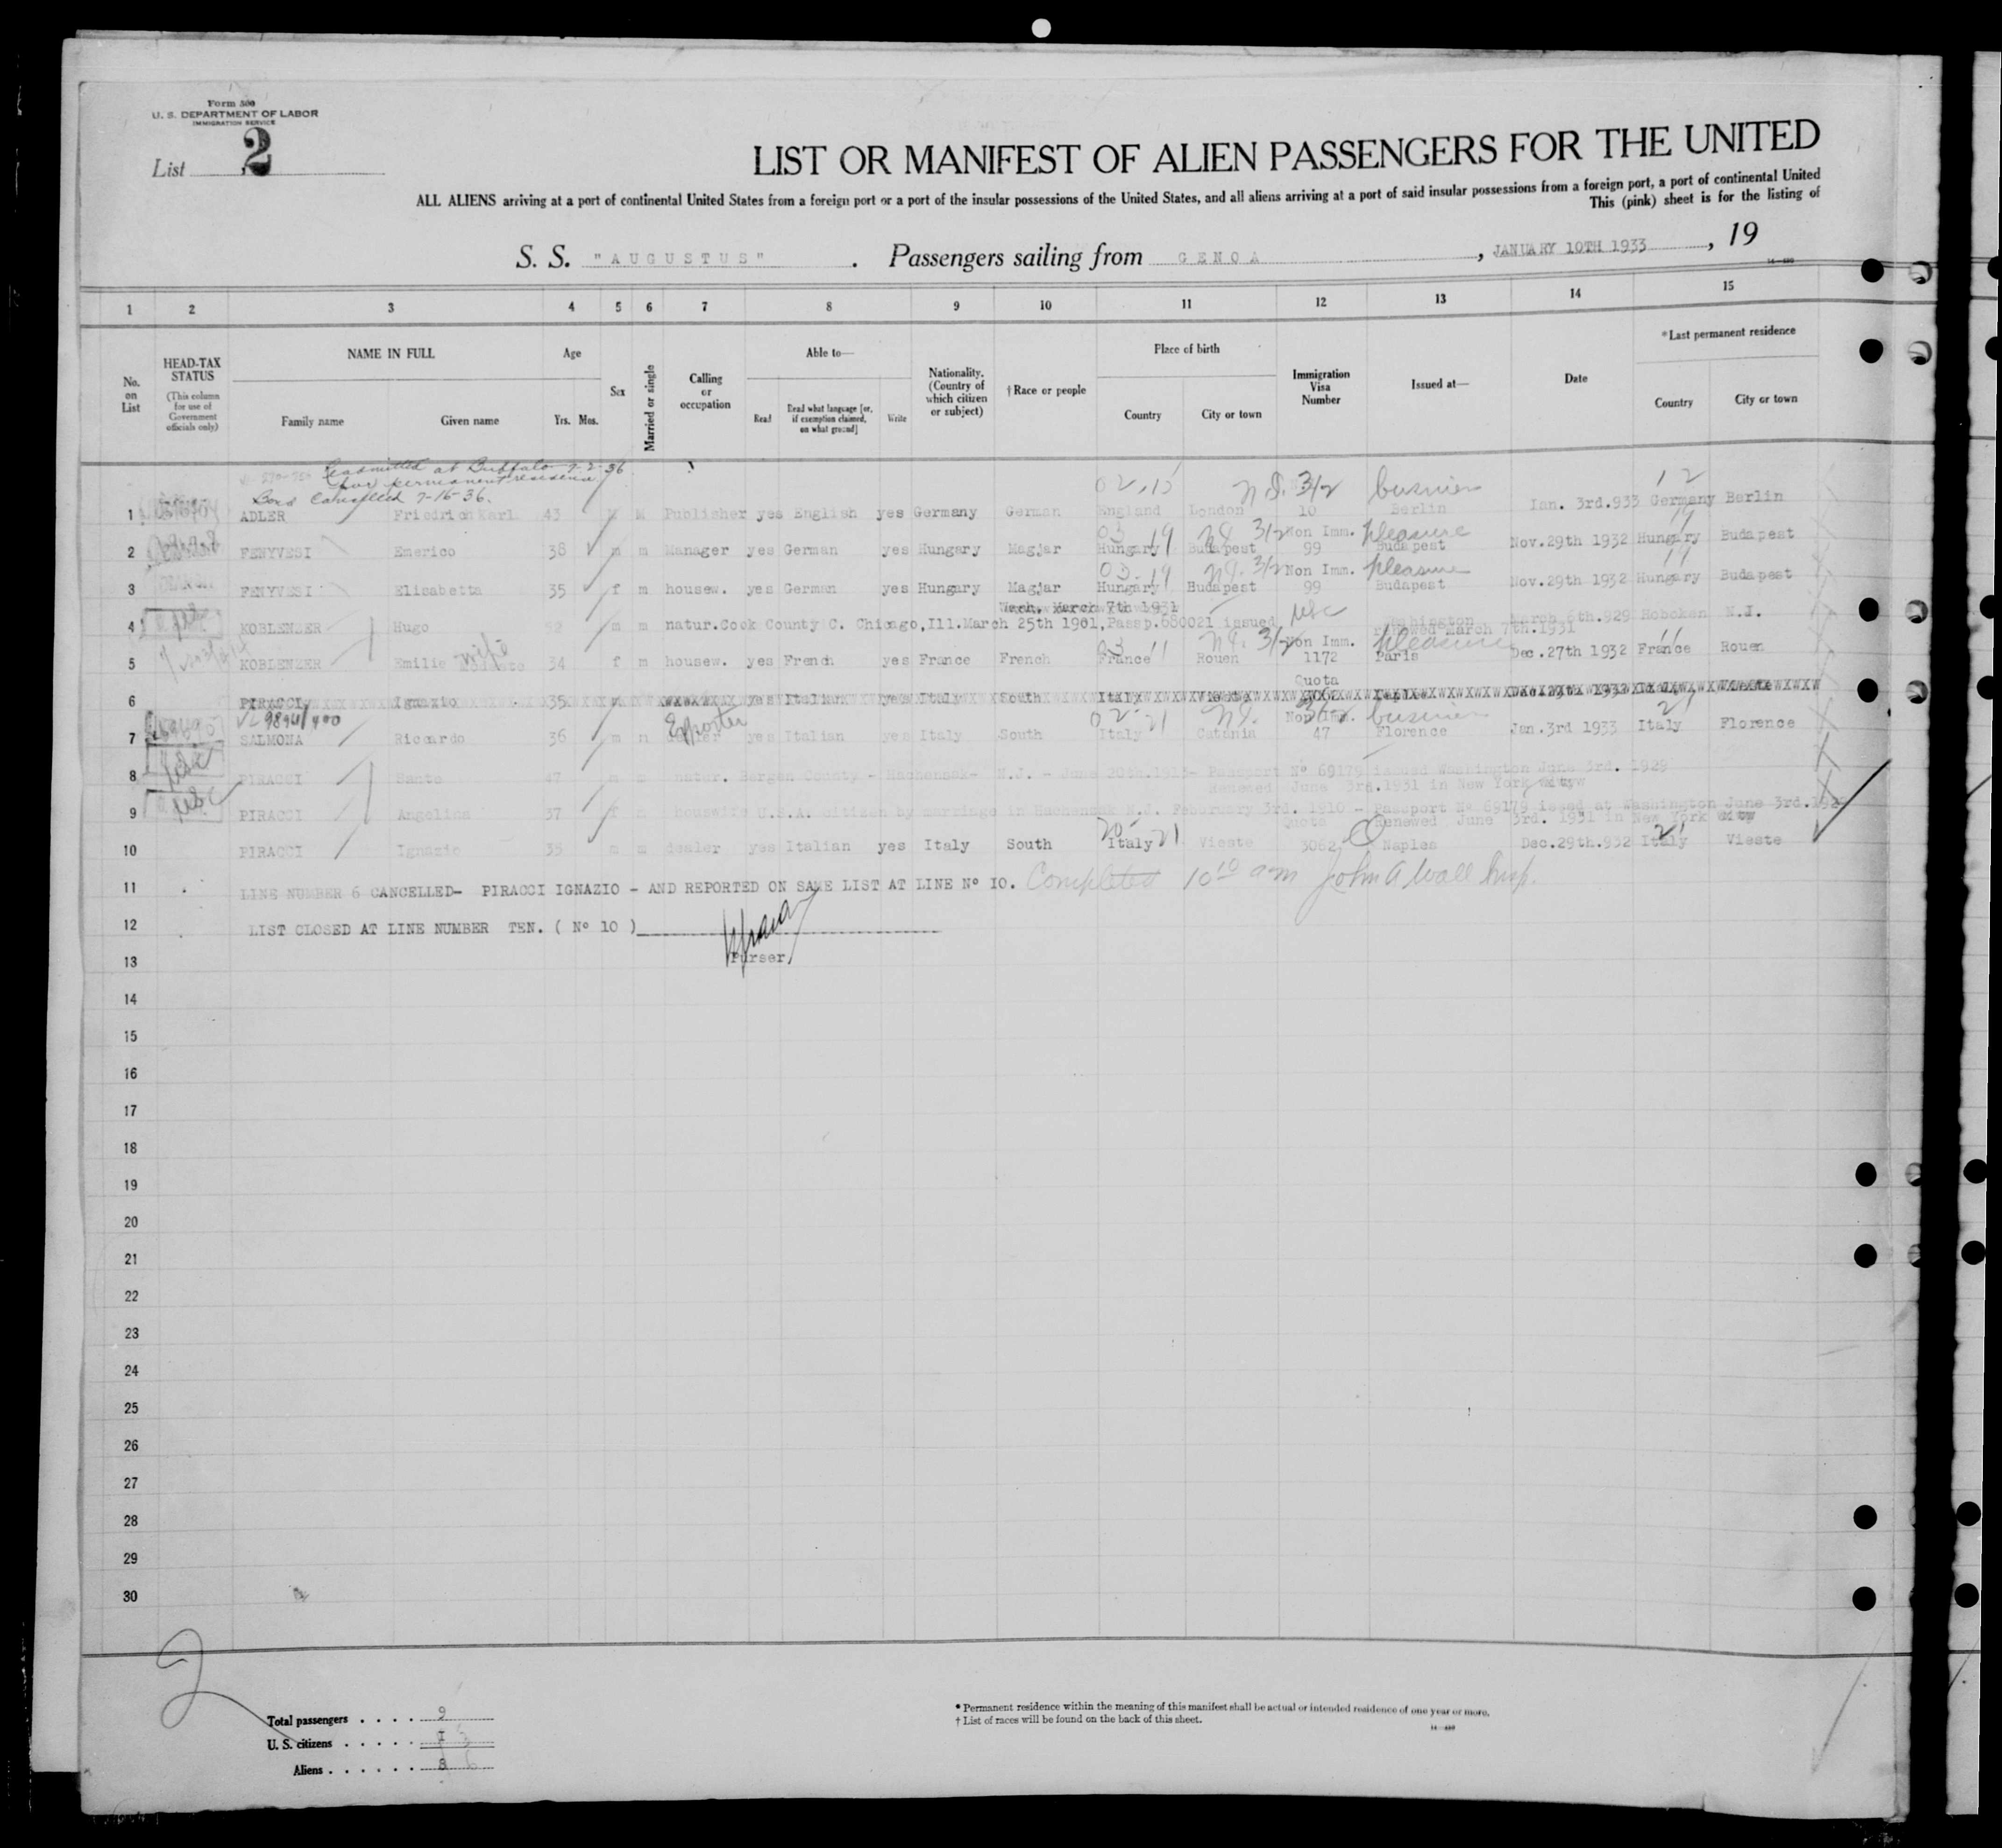 Form 500
U. S. DEPARTMENT OF LABOR
IMMIGRATION SERVICE
List 2
LIST OR MANIFEST OF ALIEN PASSENGERS FOR THE UNITED
ALL ALIENS arriving at a port of continental United States from a foreign port or a port of the insular possessions of the United States, and all aliens arriving at a port of said insular possessions from a foreign port, a port of continental United
This (pink) sheet is for the listing of
S. S. "AUGUSTUS". Passengers sailing from GENOA, JANUARY 10TH 1933, 19
1 2 3 4 5 6 7 8 9 10 11 12 13 14 15
No. on List
HEAD-TAX STATUS (This column for use of Government officials only)
NAME IN FULL Family name Given name
Age Yrs. Mos.
Sex
Married or single
Calling or occupation
Able to— Read Read what language [or, if exemption claimed, on what ground] Write
Nationality. (Country of which citizen or subject)
†Race or people
Place of birth Country City or town
Immigration Visa Number
Issued at—
Date
*Last permanent residence Country City or town
Readmitted at Buffalo 7-2-36
for permanent residence
Bond Cancelled 7-16-36.
02,15 3/2 business 12
1 ADLER Friedrich Karl 43 M M Publisher yes English yes Germany German England London 10 Berlin Jan. 3rd.933 Germany Berlin
03 19 3/2 Non Imm. pleasure
2 FENYVESI Emerico 38 m m Manager yes German yes Hungary Magjar Hungary Budapest 99 Budapest Nov.29th 1932 Hungary Budapest
03-19 3/2 Non Imm. pleasure
3 FENYVESI Elisabetta 35 f m housew. yes German yes Hungary Magjar Hungary Budapest 99 Budapest Nov.29th 1932 Hungary Budapest
Wash. March 7th 1931 USC
4 KOBLENZER Hugo m m natur.Cook County C. Chicago,Ill.March 25th 1901,Passp.680021 issued Washington March 6th.929 Hoboken N.I.
renewed March 7th.1931
wife 03 11 3/2 Non Imm. pleasure
5 KOBLENZER Emilie 34 f m housew. yes French yes France French France Rouen 1172 Paris Dec.27th 1932 France Rouen
Quota
6 PIRACCI Ignazio 35 m yes Italian yes Italy South Italy
98941/400 Exporter 02- 21 3/2 Non Imm. business 21
7 SALMONA Riccardo 36 m m yes Italian yes Italy South Italy Catania 47 Florence Jan.3rd 1933 Italy Florence
USC
8 PIRACCI Santo 47 m m natur. Bergen County - Hachensak- N.J. - June 20th.1913- Passport Nº 69179 issued Washington June 3rd. 1929
Renewed June 3rd.1931 in New York
USC
9 PIRACCI Angelica 37 f m housewife U.S.A. citizen by marriage in Hachensak N.J. February 3rd. 1910 - Passport Nº 69179 issed at Washington June 3rd.1929
Quota Renewed June 3rd. 1931 in New York
20- 21 21
10 PIRACCI Ignazio 35 m m dealer yes Italian yes Italy South Italy Vieste 3062 Naples Dec.29th.932 Italy Vieste
11 LINE NUMBER 6 CANCELLED- PIRACCI IGNAZIO - AND REPORTED ON SAME LIST AT LINE Nº 10. Completed 10 10 am John A Wall Insp.
12 LIST CLOSED AT LINE NUMBER TEN. ( Nº 10 )
13 Purser
14
15
16
17
18
19
20
21
22
23
24
25
26
27
28
29
30
2
Total passengers . . . . 9
U. S. citizens . . . . . 1 3
Aliens . . . . . . 8 6
* Permanent residence within the meaning of this manifest shall be actual or intended residence of one year or more.
† List of races will be found on the back of this sheet.